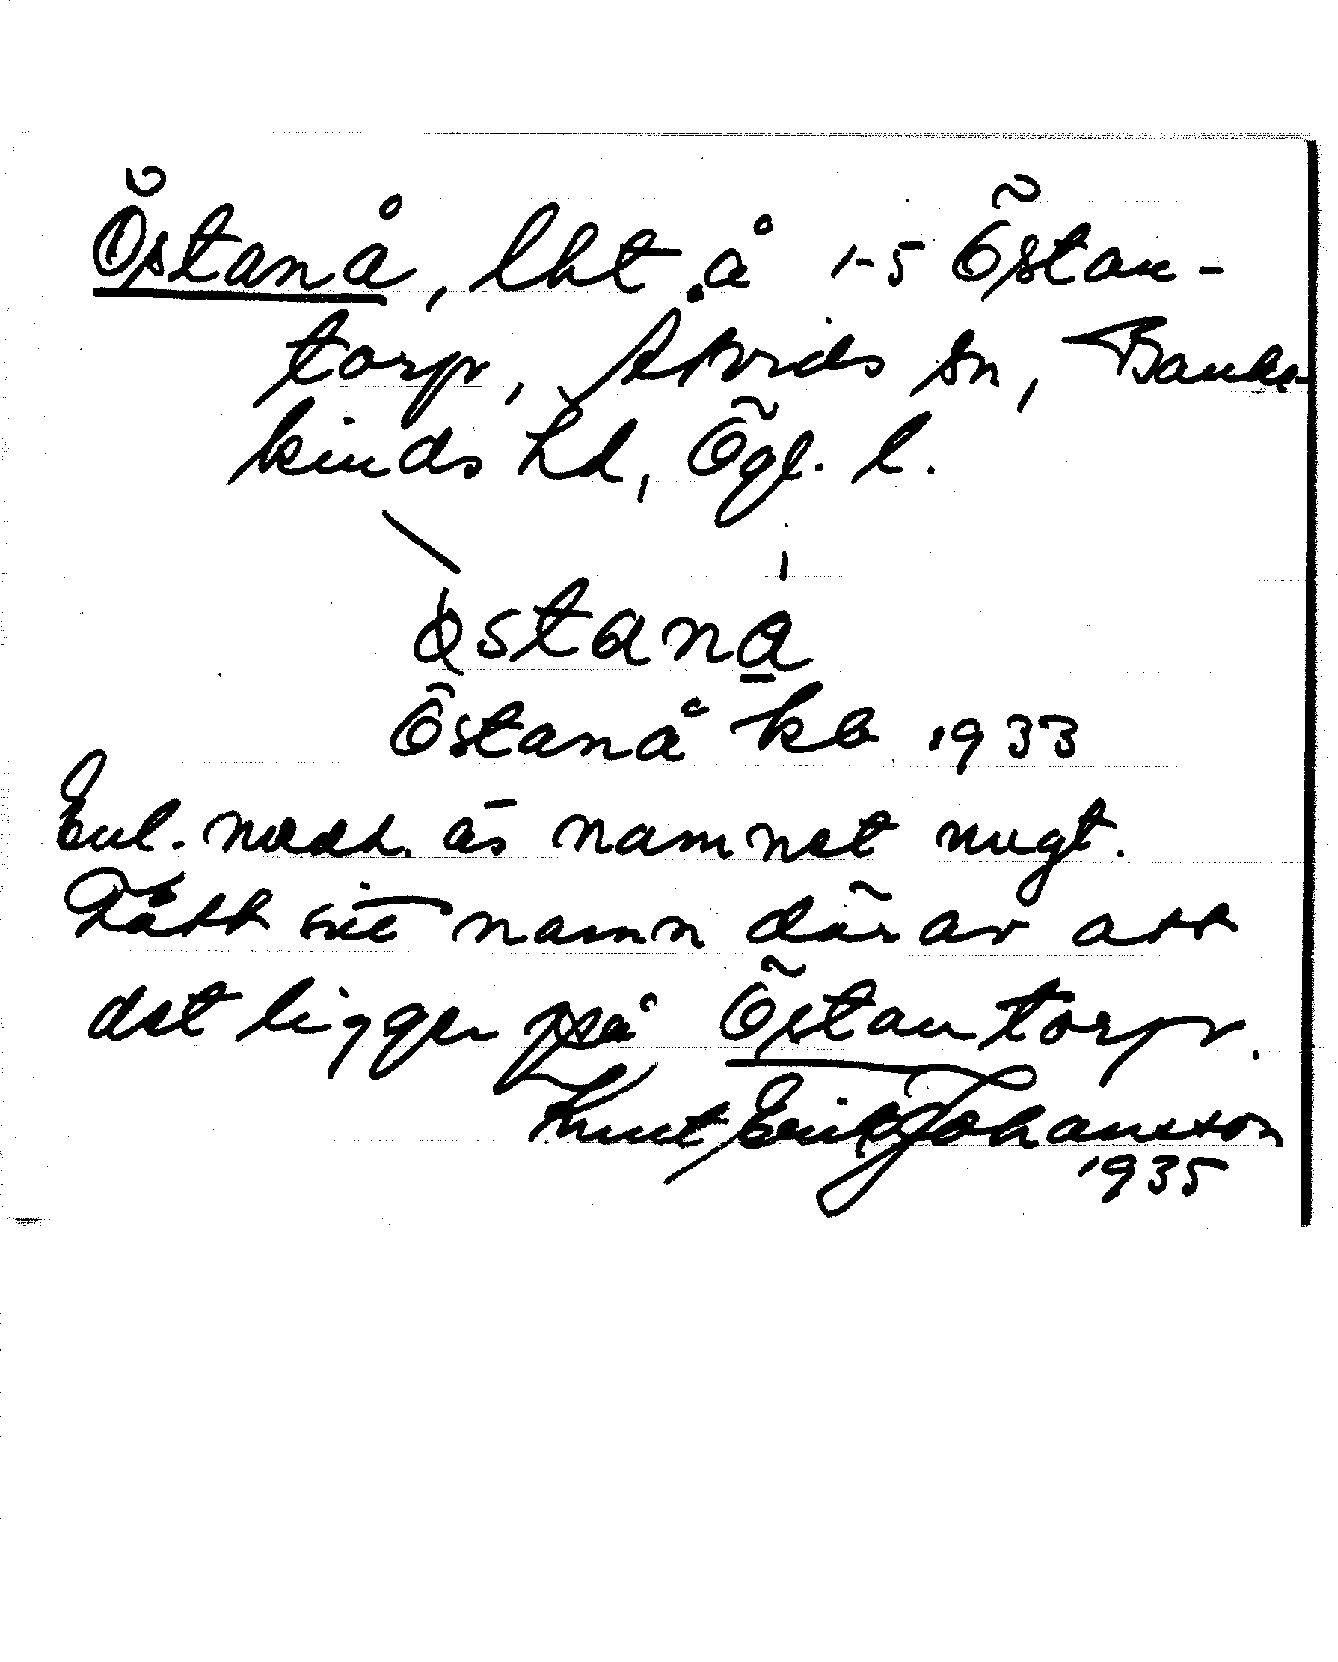 Östanå, lht å 1-5 Östan-
torp, Åtvids sn, Banke-
kinds hd, Ögl. l.
østana
Östanå kb 1933
Enl. medd. är namnet nugt.
Fått sitt namn därav att
det ligger på Östantorp.
Knut Erik Johansson
1935